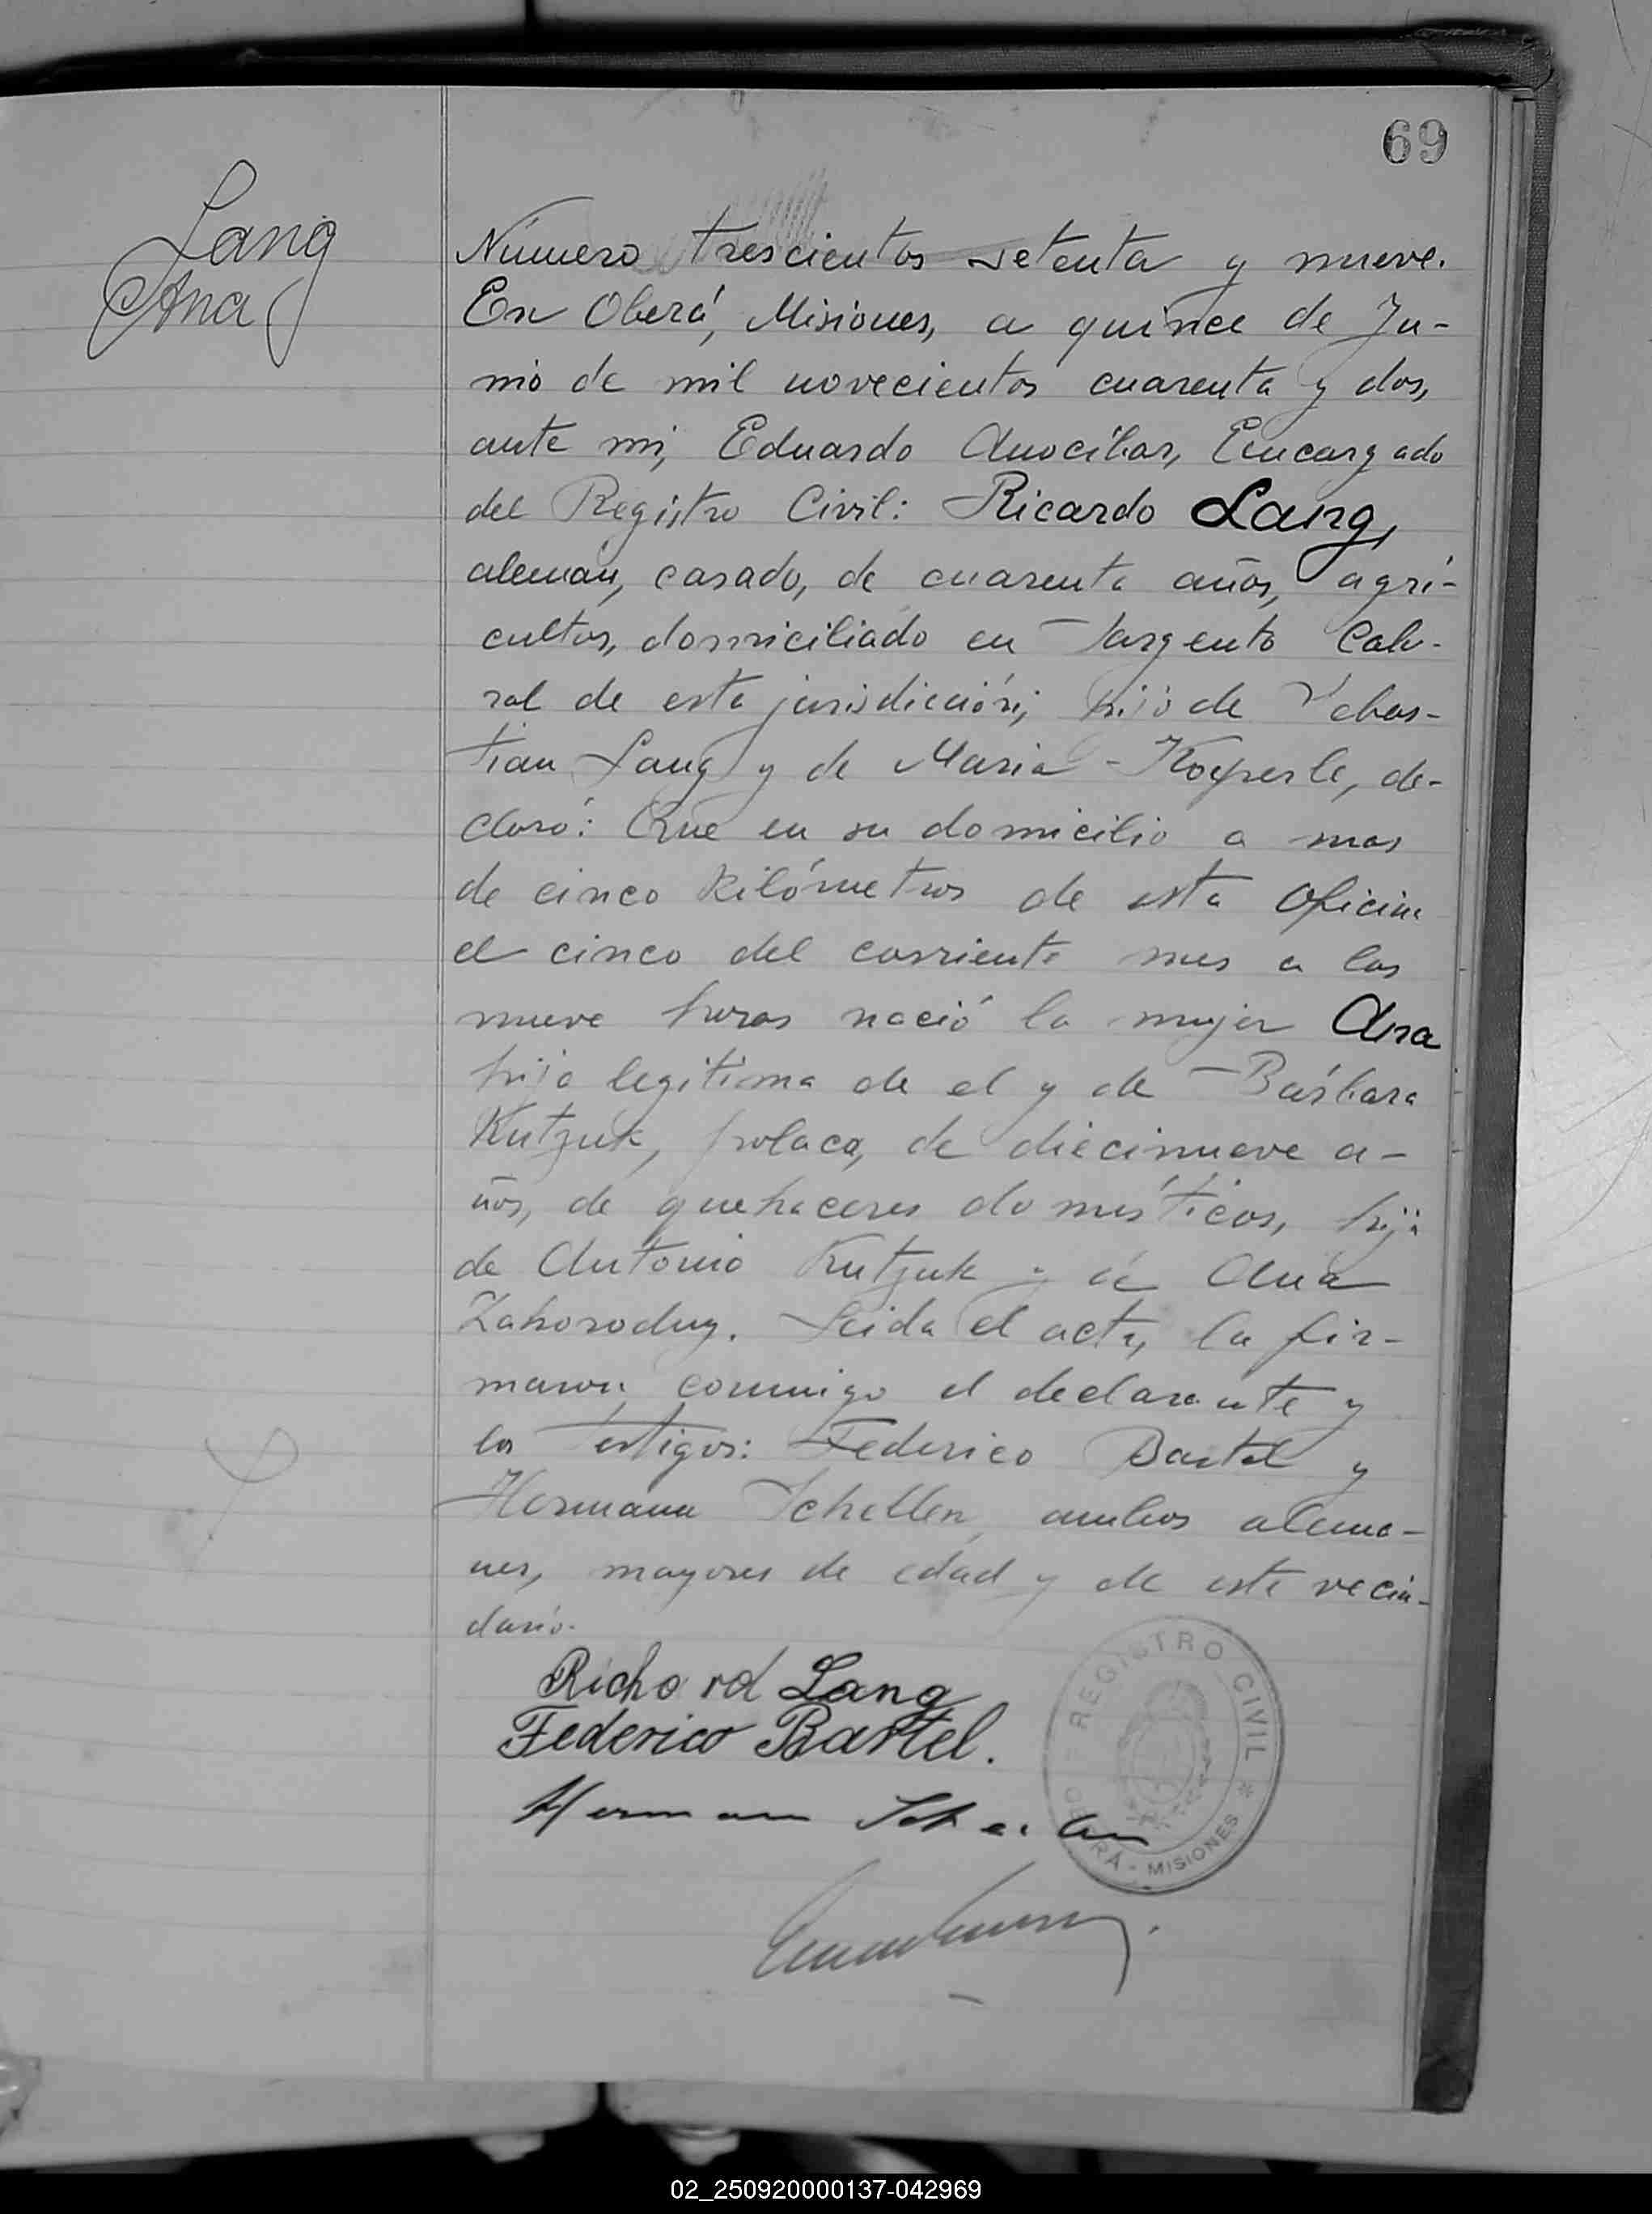 69
Lang
Ana
Número trescientos setenta y nueve.
En Oberá, Misiones, a quince de Ju-
nio de mil novecientos cuarenta y dos,
ante mi, Eduardo Anocíbar, Encargado
del Registro Civil: Ricardo Lang,
alemán, casado, de cuarenta años, agri-
cultor, domiciliado en Sargento Cab-
ral de esta jurisdicción; hijo de Sebas-
tian Lang y de Maria Koeperle, de-
claró: Que en su domicilio a mas
de cinco kilómetros de esta Oficina
el cinco del corriente mes a las
nueve horas nació la mujer Ana
hija legítima de el y de Bárbara
Kutzuk, polaca, de diecinueve a-
ños, de quehaceres domésticos, hija
de Antonio Kutzuk y de Ana
Zahorodny. Leida el acta, la fir-
maron conmigo el declarante y
los testigos: Federico Bartel y
Hermann Schellen, ambos alema-
nes, mayores de edad y de este vecin-
dario.
Richard Lang
Federico Bartel.
Hermann
REGISTRO CIVIL * OBERÁ - MISIONES
02_250920000137-042969